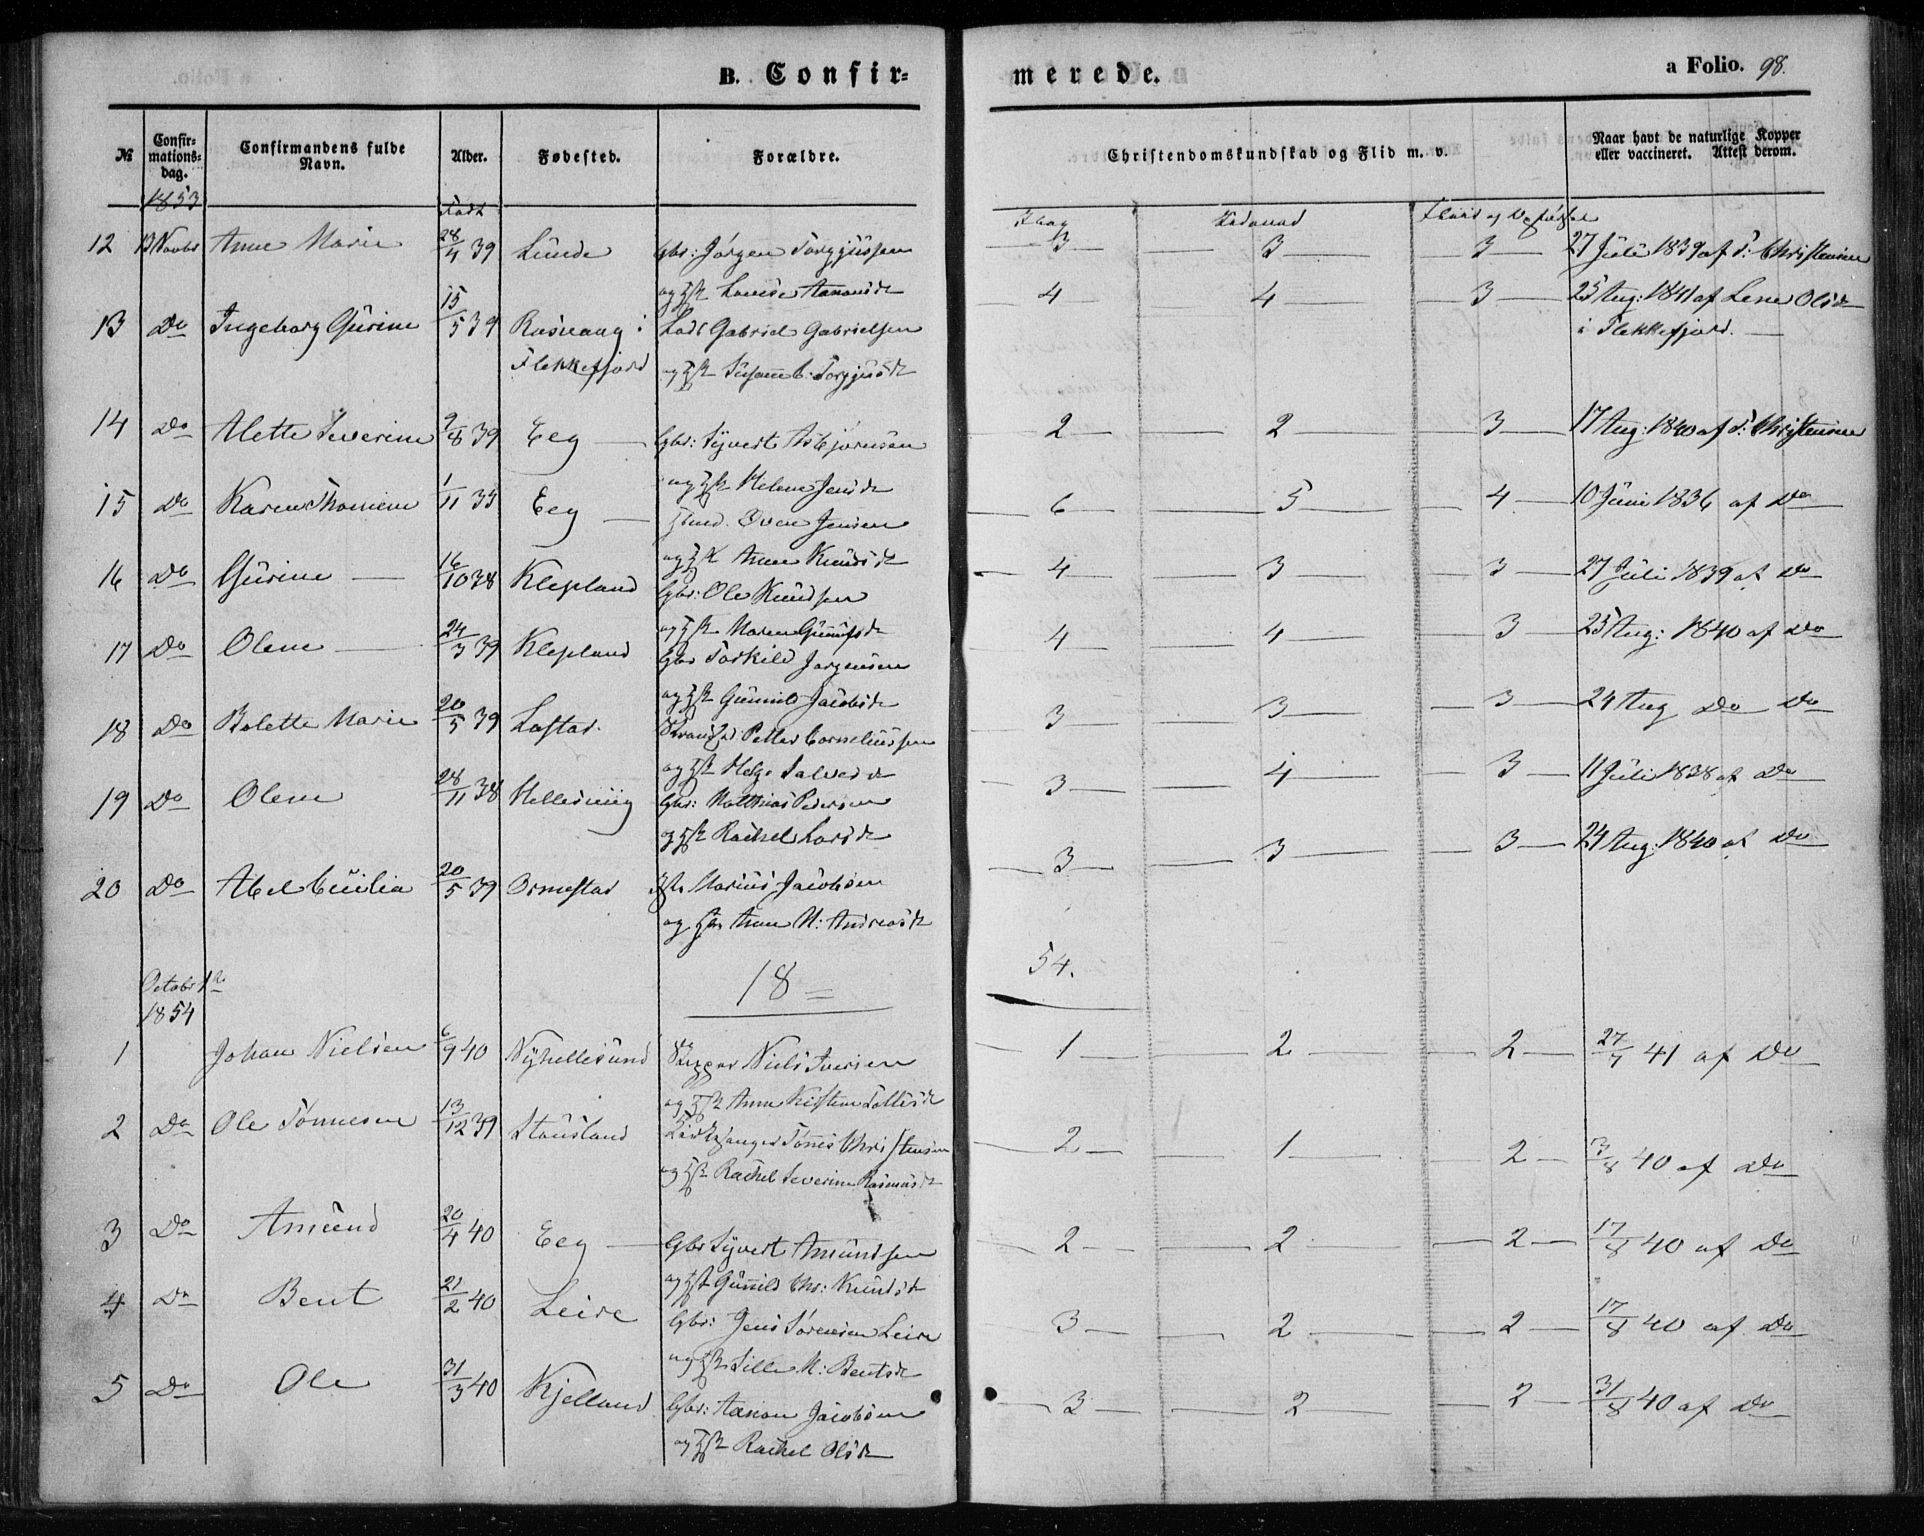 B. Confir=
merede.
a Folio. 98.
№
Confir-
mations-
dag.
Confirmandens fulde
Navn.
Alder.
Fødested.
Forældre.
Christendomskundskab og Flid m. v.
Naar havt de naturlige Kopper
eller vaccineret. Attest derom.
1853
Født
12 13 Novbr Anne Marie 28/4 39 Lunde Gbr: Jørgen Torgjussen 3 3 3 27 Juli 1839 af S: Christensen
og Hst Lovise Aanonsdt
13 Do Ingeborg Gurine 15/5 39 Rasvaag i Lods Gabriel Gabrielsen 4 4 3 25 Aug: 1841 af Lene Olsdt
Flekkefjord i Flekkefjord.
og Hst Susanne C: Torgjusdt
14 Do Alette Severine 9/8 39 Eeg Gbr: Syvert Asbjørnsen 2 2 3 17 Aug: 1840 af S: Christensen
og Hst Helene Jensdt
15 Do Karen Thomine 1/11 35 Eeg Hmd. Sven Jensen 6 5 4 10 Juni 1836 af Do
og Hst Anne Knudsdt
16 Do Gurine 16/10 38 Klepland Gbr: Ole Knudsen 4 3 3 27 Juli 1839 af Do
og Hst Maren Gunnufsdt
17 Do Olene 24/3 39 Klepland Gbr Torkild Jørgensen 4 4 3 25 Aug: 1840 af Do
og Hst Gunnild Jacobsdt
18 Do Bolette Marie 20/5 39 Lastad. Strands: Petter Corneliussen 3 3 3 24 Aug Do Do
og Hst Helge Salvesdt
19 Do Olene 28/11 38 Hellesvig Gbr: Matthias Pedersen 3 4 3 11 Juli 1838 af Do
og Hst Rachel Larsdt
20 Do Abel Cecilia 20/5 39 Ormestad Marius Jacobsen 3 3 3 24 Aug: 1840 af Do
og Hst Anne M: Andreasdt
18 =
54.
October 1ste
1854
1 Johan Nielsen 6/9 40 Nyhellesund Skipper Niels Iversen 1 2 2 27/7 41 af Do
og Hst Anne Kirstine Tollisdt
2 Do Ole Tønnesen 13/12 39 Stausland Kirkesanger Tønnes Christensen 2 1 2 3/8 40 af Do
og Hst Rachel Severine Rasmusdt
3 Do Amund 20/4 40 Eeg Gbr Syvert Amundsen 2 2 2 17/8 40 af Do
og Hst Gunnild Chr: Knudsdt
4 Do Bent 21/2 40 Leire Gbr: Jens Sørensen Leire 3 2 2 17/8 40 af Do
og Hst Sille M: Bentsdt
5 Do Ole 31/3 40 Kjelland Gbr: Aanon Jacobsen 3 2 2 31/8 40 af Do
og Hst Rachel Olsdt